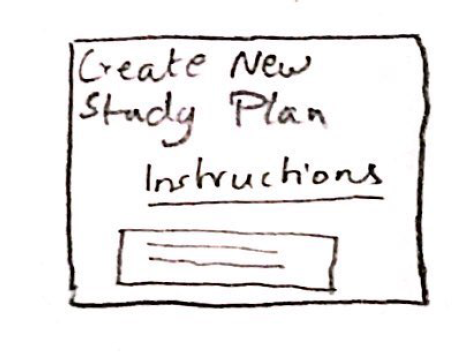 Create New
Study Plan
Instructions